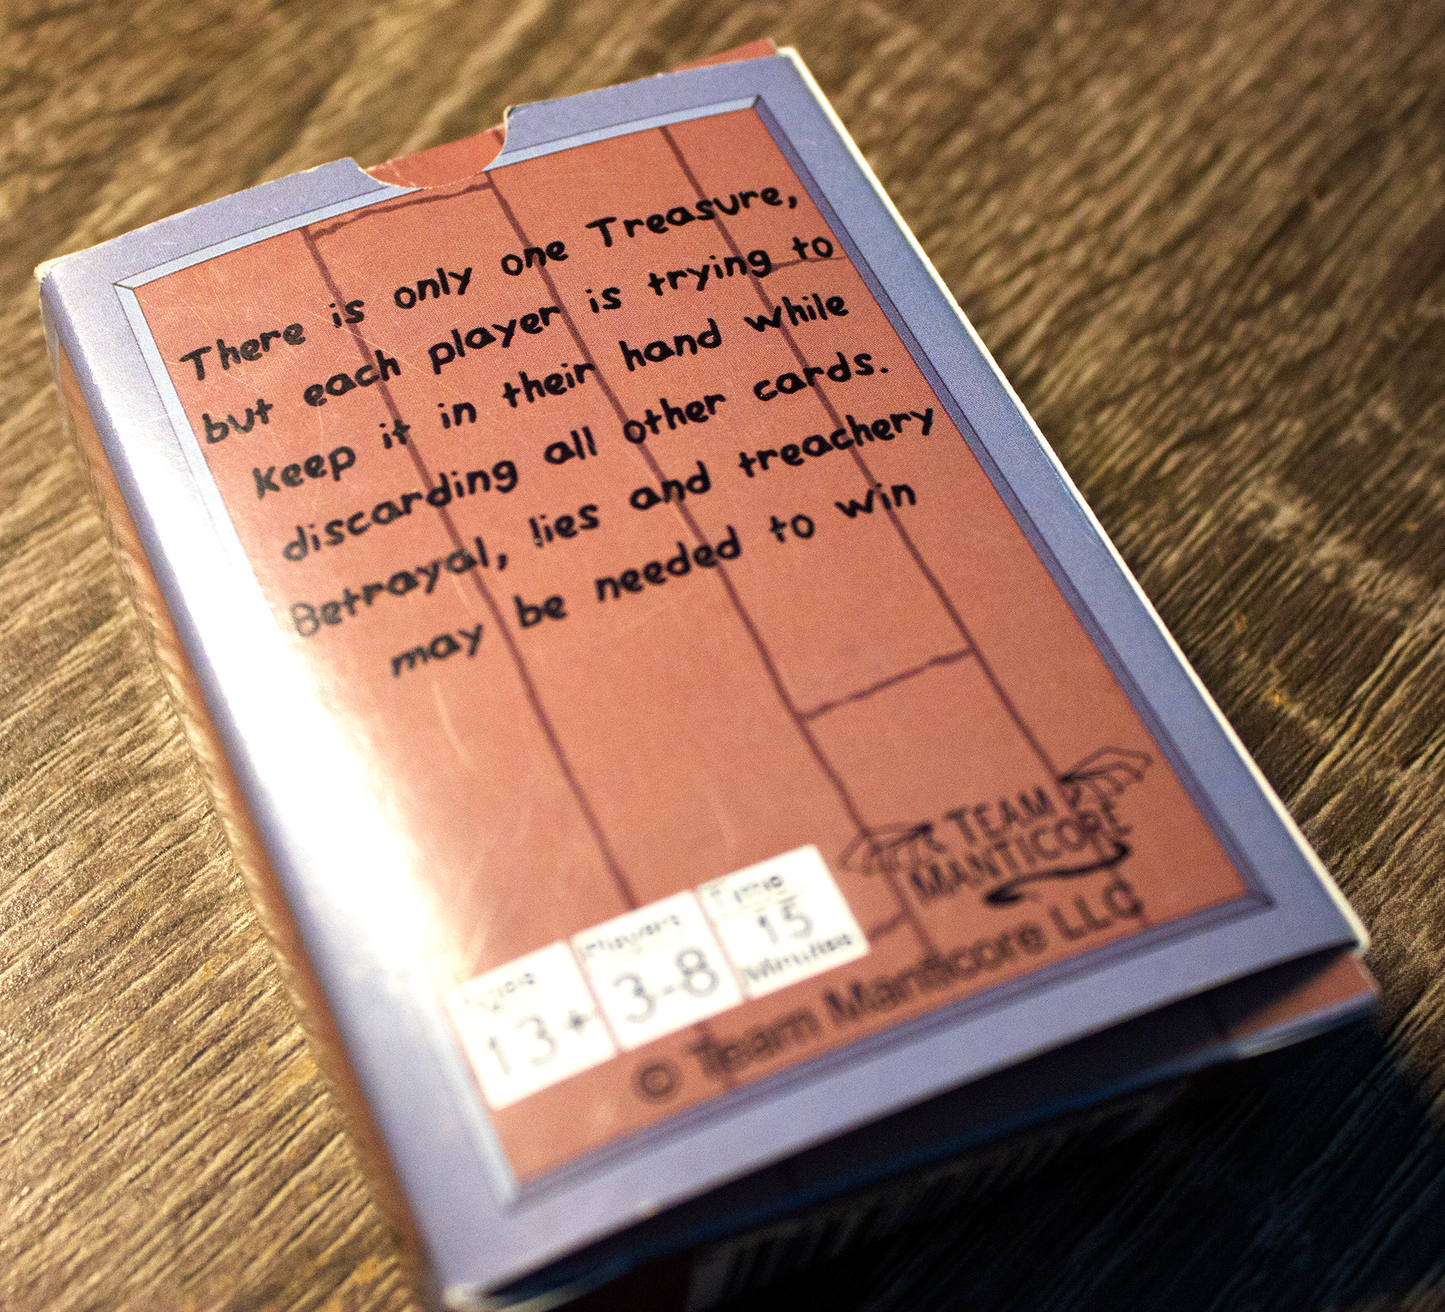 There is only one Treasure,
but each player is trying to
keep it in their hand while
discarding all other cards.
Betrayal, lies and treachery
may be needed to win
TEAM
MANTICORE
13+
Players
3-8
Time
15
Minutes
© Team Manticore LLC